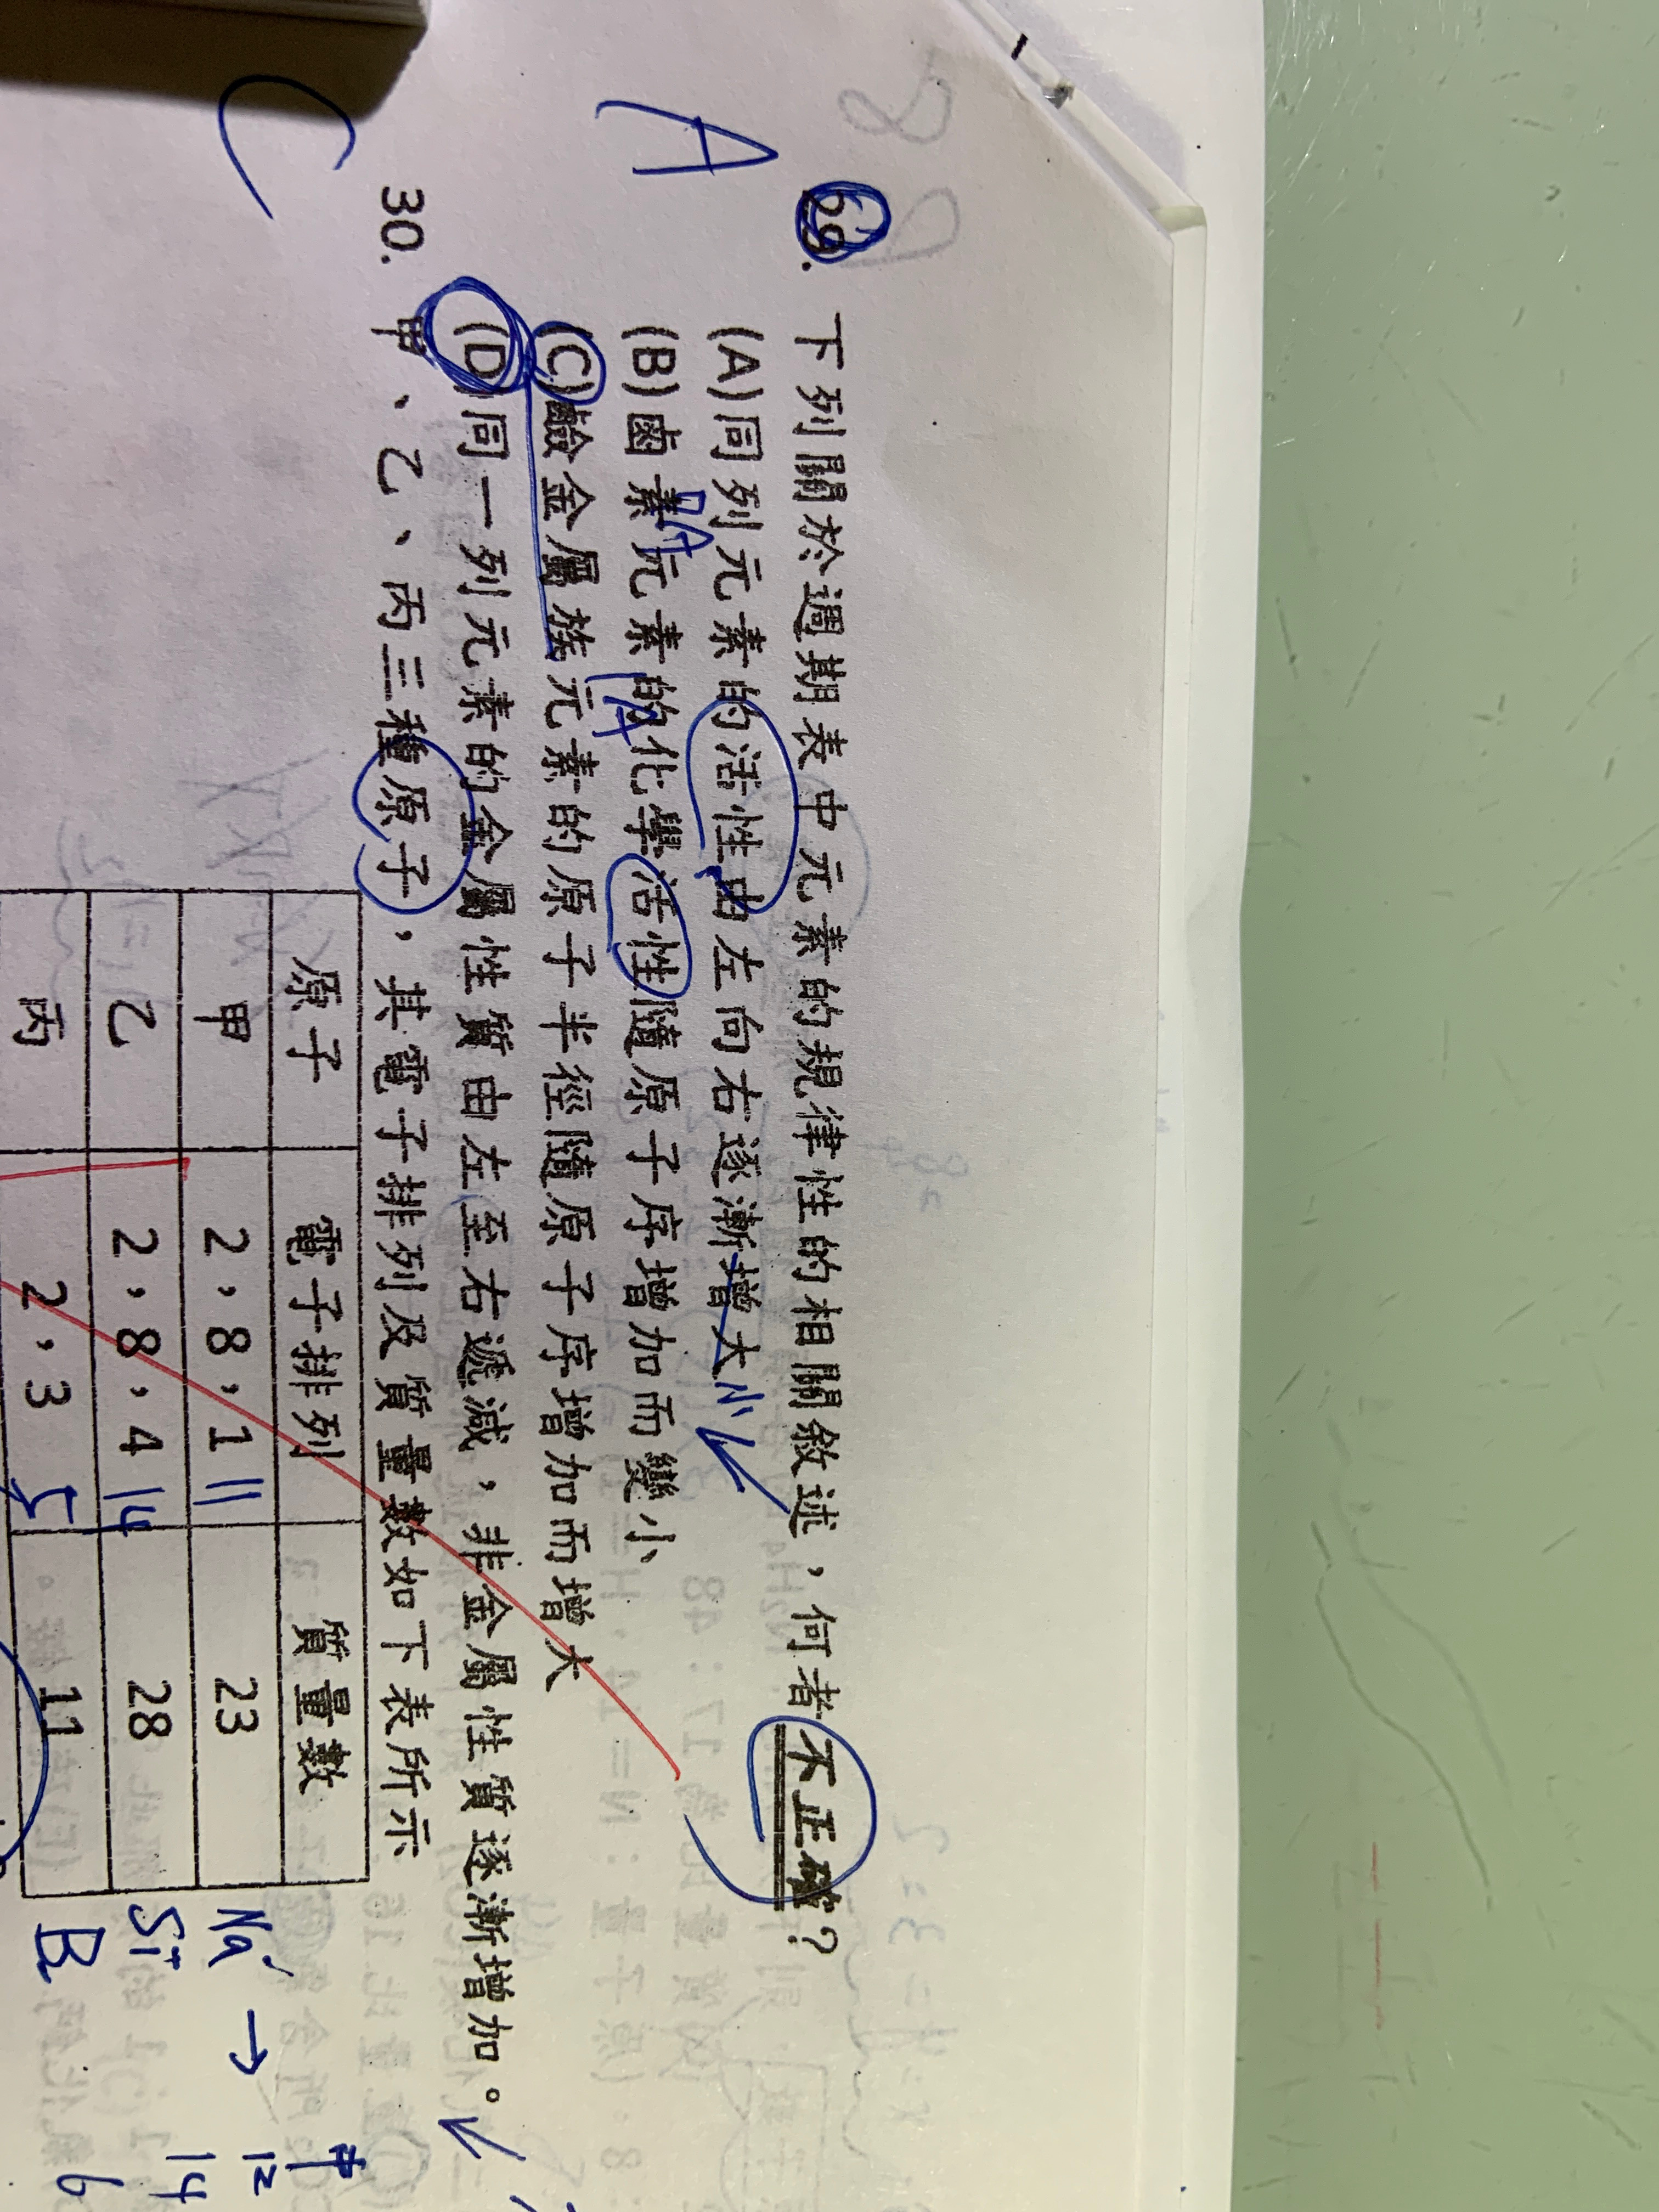 A
29. 下列關於週期表中元素的規律性的相關敘述，何者不正確？
(A)同列元素的活性由左向右逐漸增大 小
(B)鹵素元素的化學活性隨原子序增加而變小
(C)鹼金屬族元素的原子半徑隨原子序增加而增大
(D)同一列元素的金屬性質由左至右遞減，非金屬性質逐漸增加。
C
30. 甲、乙、丙三種原子，其電子排列及質量數如下表所示
原子 電子排列 質量數 中
甲 2，8，1 11 23 Na → 12
乙 2，8，4 14 28 Si 14
丙 2，3 5 11 B 6